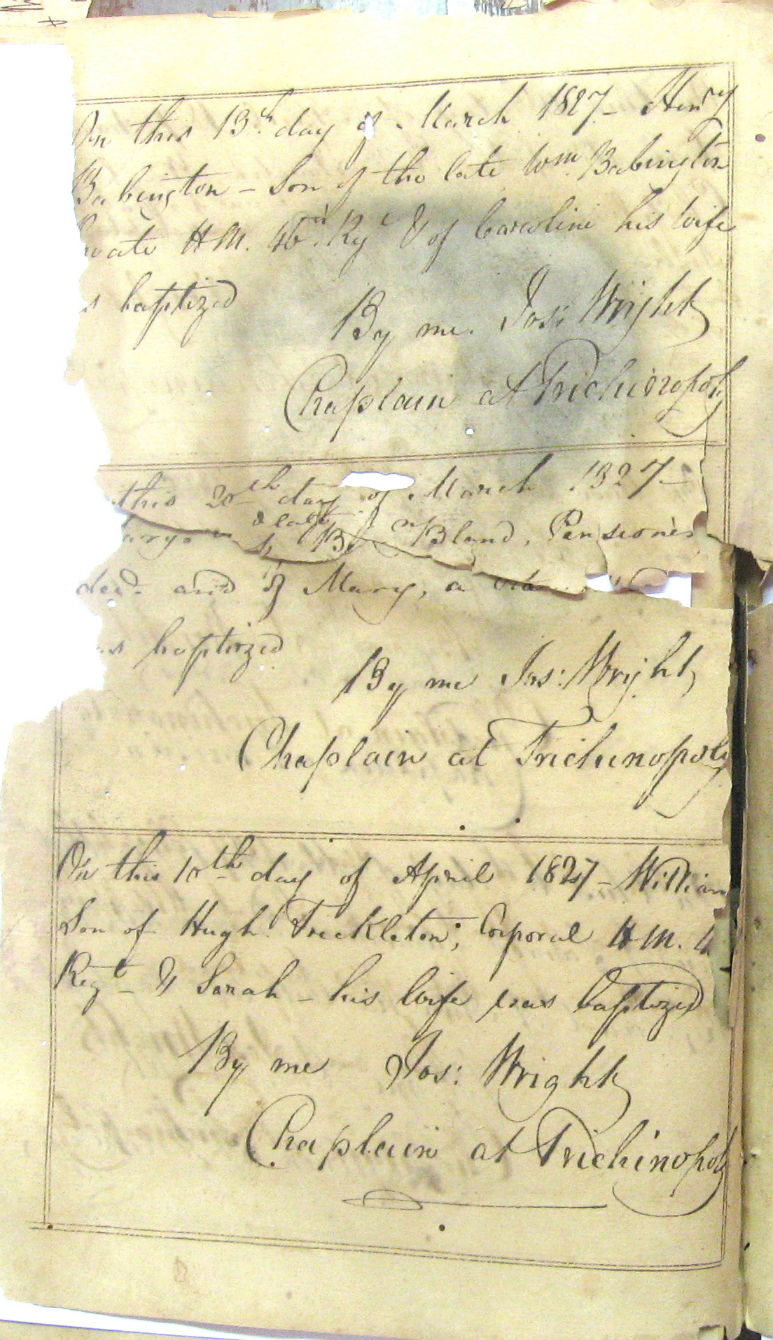 On this 13th day of March 1827 – Henry
Babington – Son of the late Wm. Babington
H.M. 46th Rgt & of Caroline his wife
baptized By me. Jos: Wright
Chaplain at Trichinopoly
this 20th day of March 1827 –
Bland, Pensioner
decd. and of Mary, a
baptized
By me Jos: Wright
Chaplain at Trichinopoly
On this 10th day of April 1827 – William
Son of Hugh Freckleton, Corporal H.M.
Regt – & Sarah – his wife was baptized
By me Jos: Wright
Chaplain at Trichinopoly